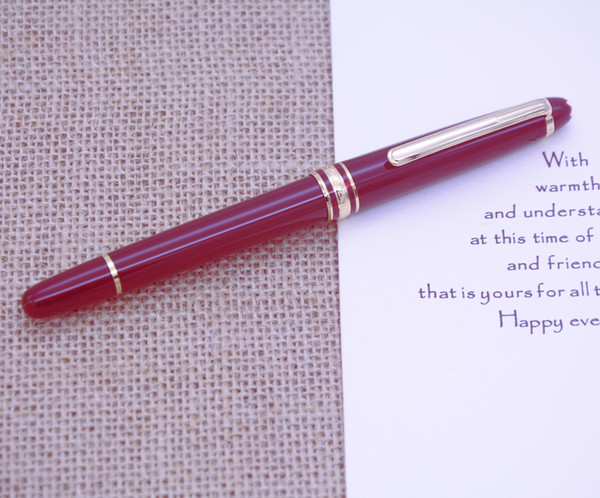 With
warmth
and understa
at this time of
and friend
that is yours for all t
Happy eve